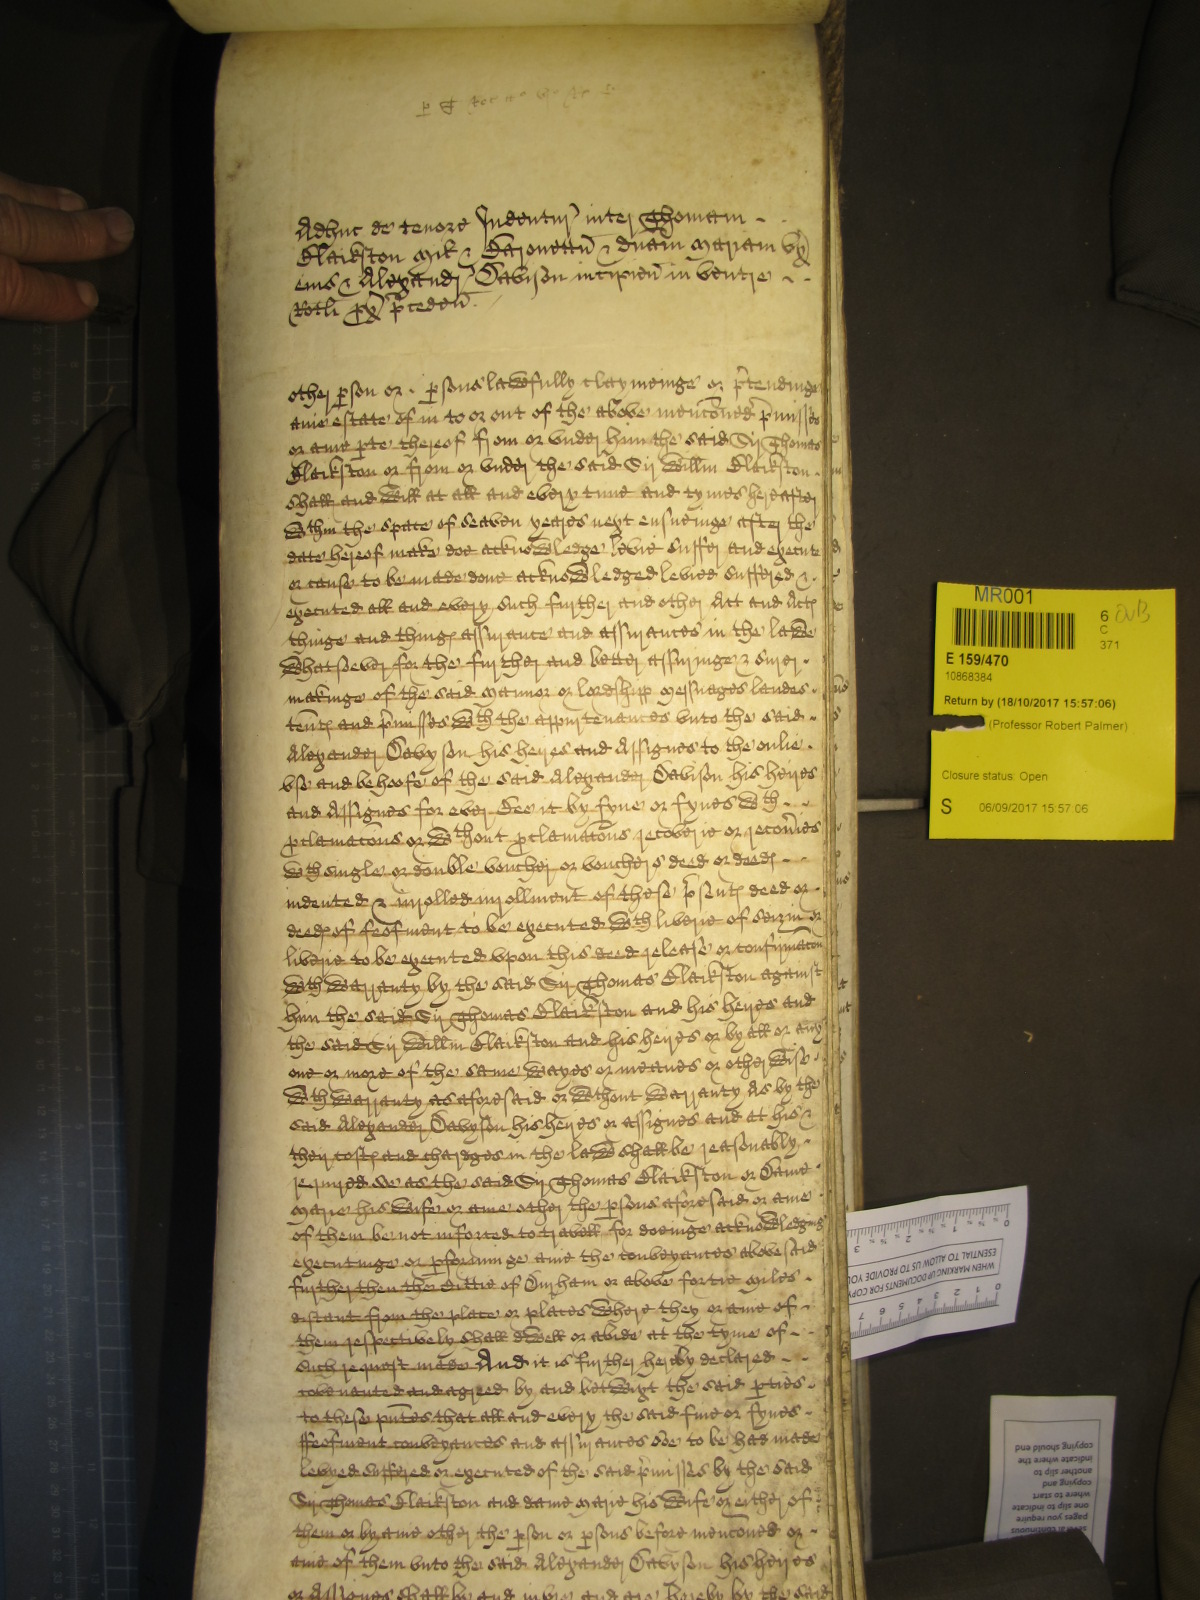 Adhuc de tenore Indentur inter Thomam
Blaikston Milit & Baronettu & dnam Mariam vx
eius & Alexandr Davison incipien in ventre
Rotli px preceden.
other pson or psons lawfully claymeinge or ptendinge
anie estate of in to or out of the above menconed pmisses
or anie pte thereof from or vnder him the said Sir Thomas
Blaikston or from or vnder the said Sir Willm Blaikston
shall and will at all and every time and tymes hereafter
wthin the space of seaven yeares next ensueinge after the
date hereof make doe acknowledge levie suffer and execute
or cause to be made done acknowledged levied suffered &
executed all and every such further and other Act and Acts
thinge and things assurance and assurances in the lawe
whatsoever for the further and better assuringe & surer
makinge of the said mannor or lordshipp messuages landes
tents and pmisses wth the appurtenances vnto the said
Alexander Davyson his heires and Assignes to the onlie
vse and behoofe of the said Alexander Davison his heires
and Assignes for ever Bee it by fyne or fynes wth
pclamacons or wthout pclamacons recoverie or recoveries
wth single or double voucher or vouchers deed or deeds
indented & inrolled inrollment of these psents deed or
deeds of feofment to be executed wth liverie of seizin or
liverie to be executed vpon this deed release or confirmacon
wth warranty by the said Sir Thomas Blaikston against
him the said Sir Thomas Blaikston and his heires and
the said Sir Willm Blaikston and his heires or by all or any
one or more of the same wayes or meanes or otherwise
wth warranty as aforesaid or wthout warranty As by the
said Alexander Davyson his heires or assignes and at his &
their costs and chardges in the law shalbe reasonably
required Soe as the said Sir Thomas Blaikston or Dame
Marie his wife or anie other the psons aforesaid or anie
of them be not inforced to travell for doeinge acknowledging
executinge or pforminge anie the conveyances abovesaid
further then the Cittie of Durham or above fortie miles
distant from the place or places where they or anie of
them respectively shall dwell or abide at the tyme of
such request made And it is further hereby declared
covenanted and agreed by and betwixt the said pties
to these pntes that all and every the said fine or fynes
ffeofment conveyances and assurances soe to be had made
levied suffered or executed of the said pmisses by the said
Sir Thomas Blaikston and dame Marie his wife or either of
them or by anie other the pson or psons before menconed or
anie of them vnto the said Alexander Davyson his heires
or Assignes shall be and invre and are hereby by the said
MR001
6
C
371
E 159/470
10868384
Return by (18/10/2017 15:57:06)
(Professor Robert Palmer)
Closure status: Open
S 06/09/2017 15:57:06
WHEN MARKING UP DOCUMENTS FOR COPY
ESENTIAL TO ALLOW US TO PROVIDE YOU
pages you require
one slip to indicate
where to start
copying and
another slip to
indicate where the
copying should end